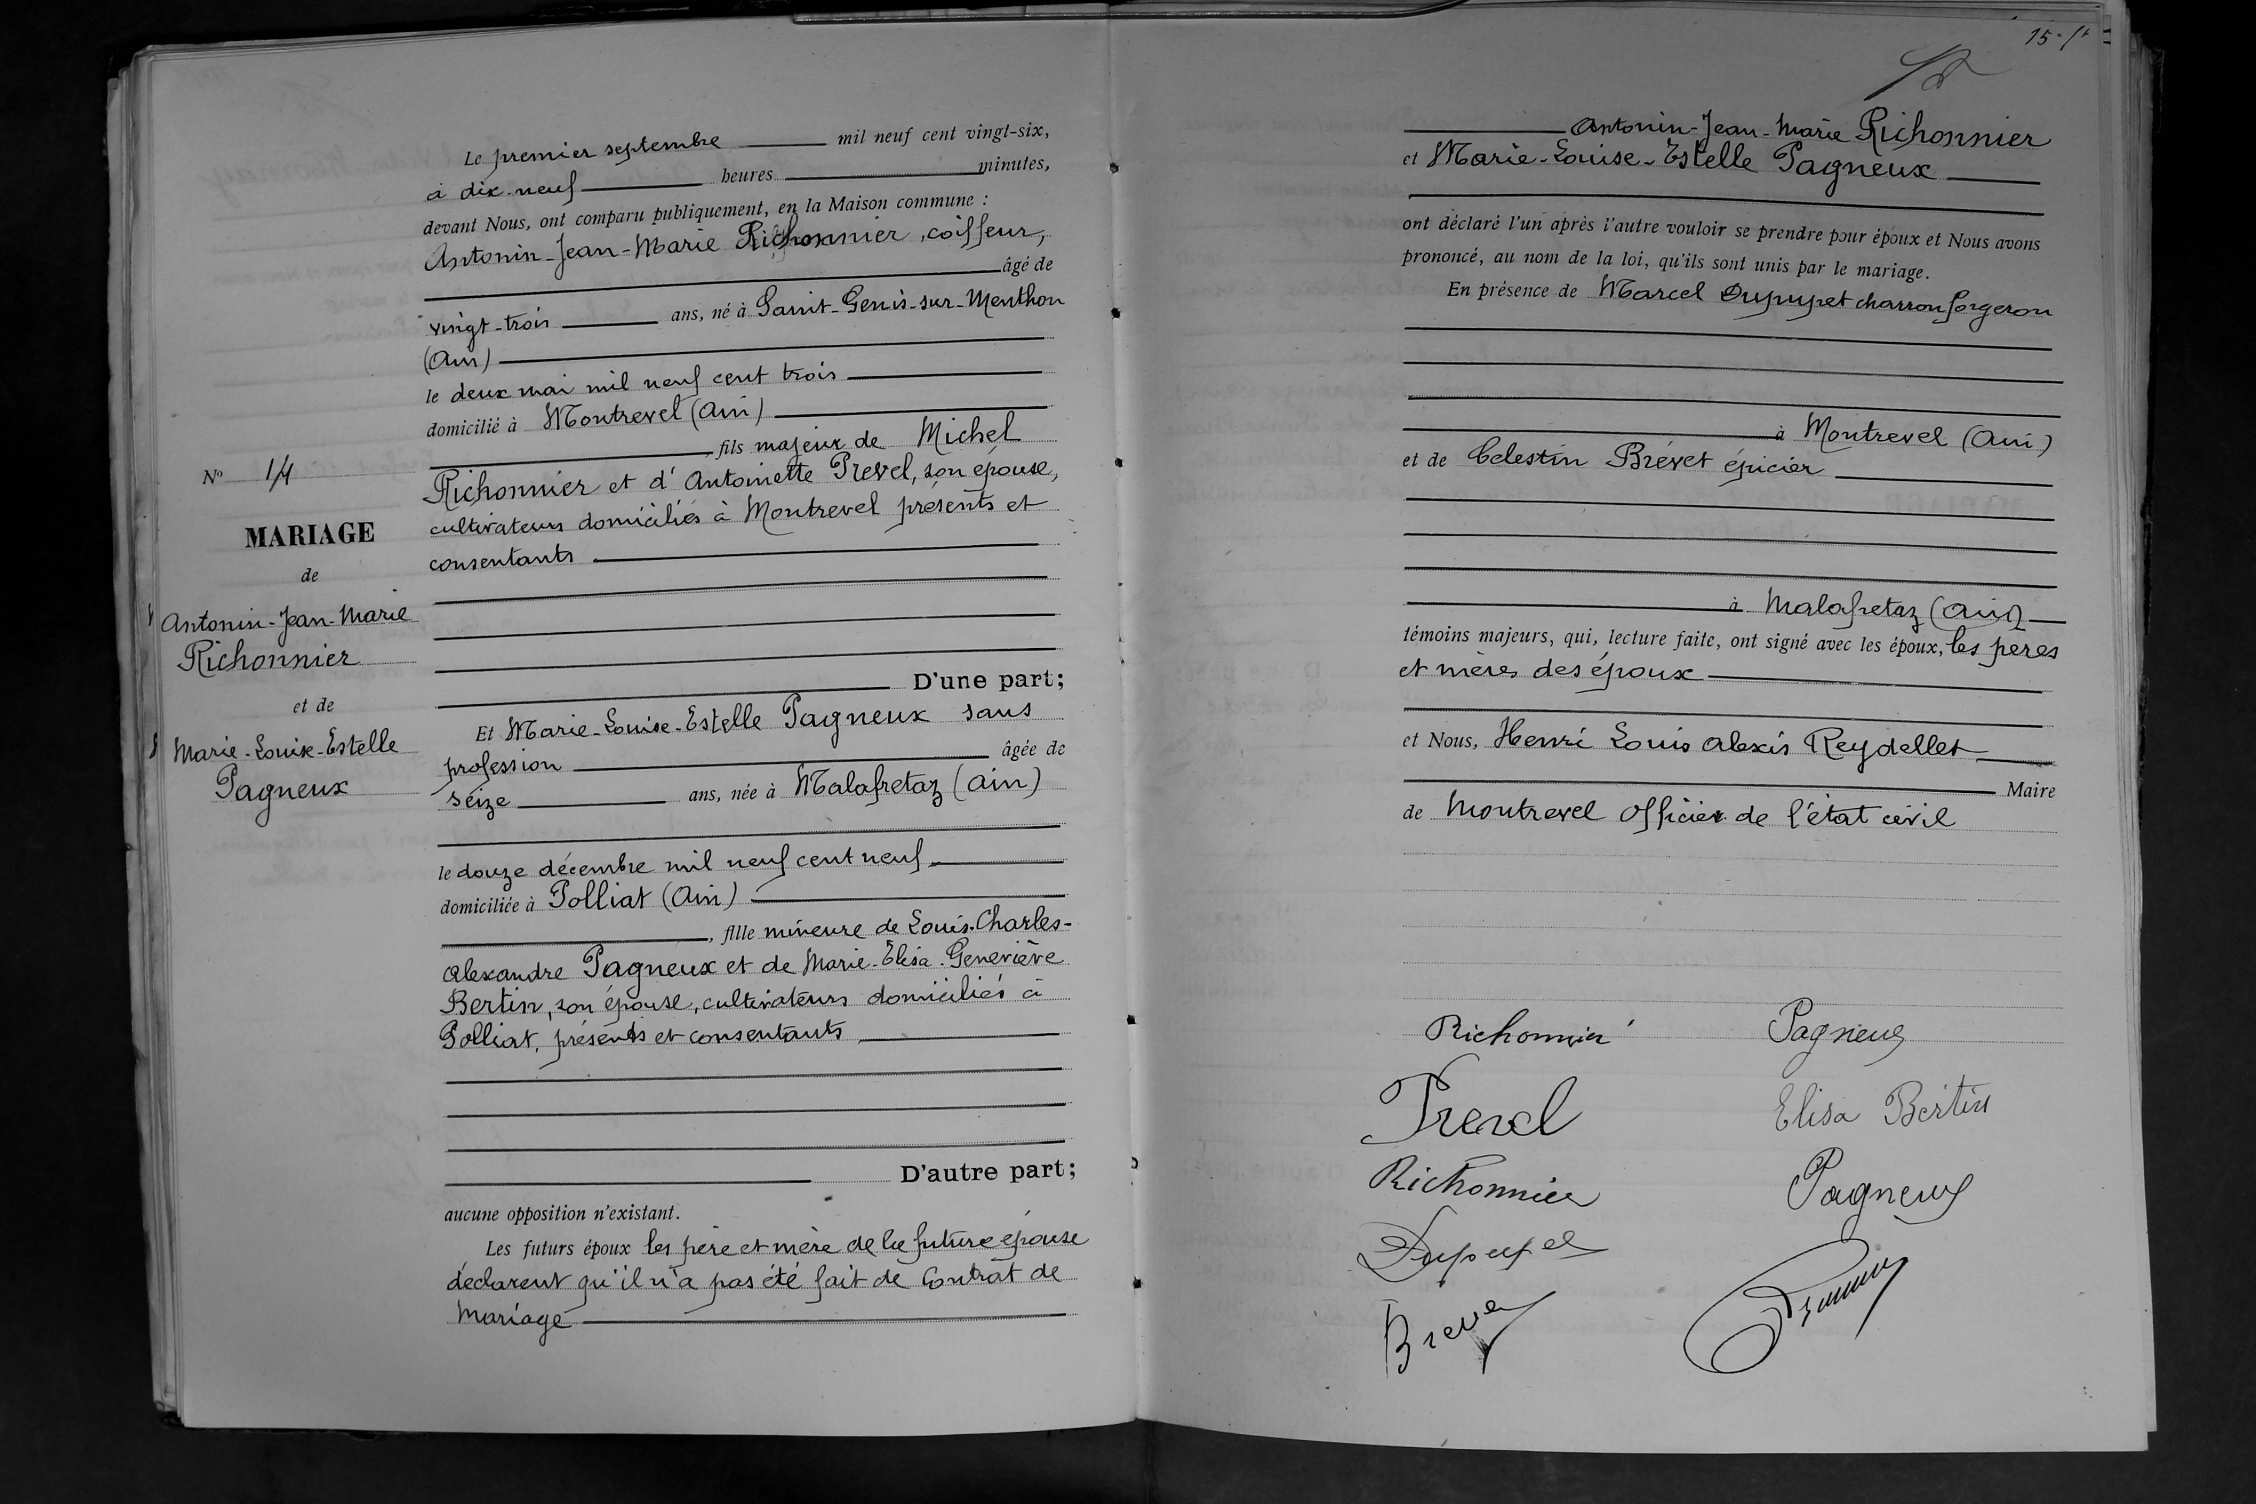 Le premier septembre mil neuf cent vingt-six,
à dix-neuf heures minutes,
devant Nous, ont comparu publiquement, en la Maison commune :
Antonin-Jean-Marie Richonnier, coiffeur,
âgé de
vingt-trois ans, né à Saint-Genis-sur-Menthon
(Ain)
le deux mai mil neuf cent trois
domicilié à Montrevel (Ain)
fils majeur de Michel
Richonnier et d'Antoinette Prevel, son épouse,
cultivateurs domiciliés à Montrevel présents et
consentants
D'une part;
Nº 14
MARIAGE
de
Antonin-Jean-Marie
Richonnier
et de
Marie-Louise-Estelle
Pagneux
Et Marie-Louise-Estelle Pagneux sans
profession âgée de
seize ans, née à Malafretaz (Ain)
le douze décembre mil neuf cent neuf
domiciliée à Polliat (Ain)
, fille mineure de Louis-Charles-
Alexandre Pagneux et de Marie-Elisa-Geneviève
Bertin, son épouse, cultivateurs domiciliés à
Polliat, présents et consentants
D'autre part;
aucune opposition n'existant.
Les futurs époux les père et mère de la future épouse
déclarent qu'il n'a pas été fait de Contrat de
Mariage
Antonin-Jean-Marie Richonnier
et Marie-Louise-Estelle Pagneux
ont déclaré l'un après l'autre vouloir se prendre pour époux et Nous avons
prononcé, au nom de la loi, qu'ils sont unis par le mariage.
En présence de Marcel Dupupet charron forgeron
à Montrevel (Ain)
et de Celestin Brévet épicier
à Malafretaz (Ain)
témoins majeurs, qui, lecture faite, ont signé avec les époux, les pères
et mères des époux
et Nous, Henri Louis Alexis Reydellet
Maire
de Montrevel Officier de l'état civil
Richonnier Pagneux
Prevel Elisa Bertin
Richonnier Pagneux
Dupupet
Brevet